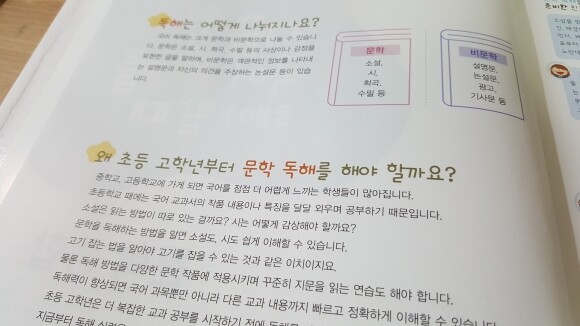 독해는 어떻게 나뉘지나요?
국어 독해는 크게 문학과 비문학으로 나눌 수 있습니
다. 문학은 소설, 시, 희곡, 수필 등의 사상이나 감정을
표현한 글을 말하며, 비문학은 객관적인 정보를 나타내
는 설명문과 자신의 의견을 주장하는 논설문 등이 있습
니다.
문학
소설,
시,
희곡,
수필 등
비문학
설명문,
논설문,
광고,
기사문 등
왜 초등 고학년부터 문학 독해를 해야 할까요?
중학교, 고등학교에 가게 되면 국어를 점점 더 어렵게 느끼는 학생들이 많아집니다.
초등학교 때에는 국어 교과서의 작품 내용이나 특징을 달달 외우며 공부하기 때문입니다.
소설은 읽는 방법이 따로 있는 걸까요? 시는 어떻게 감상해야 할까요?
문학을 독해하는 방법을 알면 소설도, 시도 쉽게 이해할 수 있습니다.
고기 잡는 법을 알아야 고기를 잡을 수 있는 것과 같은 이치이지요.
물론 독해 방법을 다양한 문학 작품에 적용시키며 꾸준히 지문을 읽는 연습도 해야 합니다.
독해력이 향상되면 국어 과목뿐만 아니라 다른 교과 내용까지 빠르고 정확하게 이해할 수 있습니다.
초등 고학년은 더 복잡한 교과 공부를 시작하기 전에
지금부터 독해